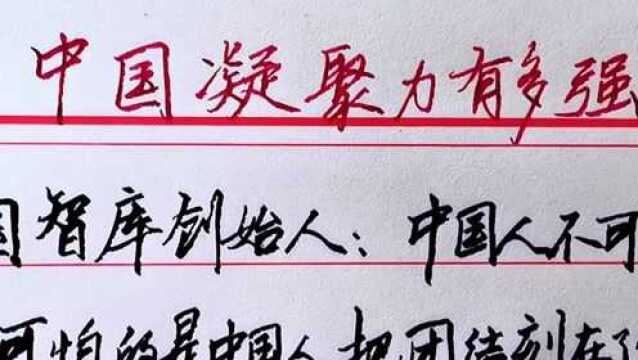 中国凝聚力有多强
国智库创始人：中国人不可
可怕的是中国人把团结刻在